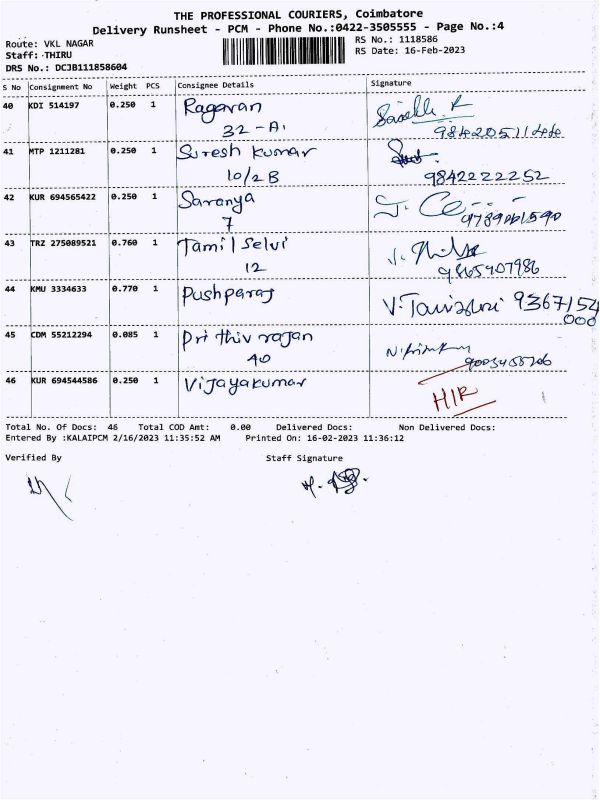 THE PROFESSIONAL COURIERS, Coimbatore
Delivery Runsheet - PCM - Phone No.:0422-3505555 - Page No.:4
Route: VKL NAGAR
RS No.: 1118586
Staff: THIRU
RS Date: 16-Feb-2023
DRS No.: DCJB111858604
S No Consignment No Weight PCS Consignee Details Signature
40 KDI 514197 0.250 1 Ragavan
32-A1
41 MTP 1211281 0.250 1 Suresh kumar
10/2B 9842222252
42 KUR 694565422 0.250 1 Saranya
7
43 TRZ 275089521 0.760 1 Tamil Selvi
12 9865907986
44 KMU 3334633 0.770 1 Pushparaj 9367154
000
45 CDM 55212294 0.085 1 Prithivrajan
40
46 KUR 694544586 0.250 1 Vijayakumar
HIR
Total No. Of Docs: 46 Total COD Amt: 0.00 Delivered Docs: Non Delivered Docs:
Entered By :KALAIPCM 2/16/2023 11:35:52 AM Printed On: 16-02-2023 11:36:12
Verified By Staff Signature